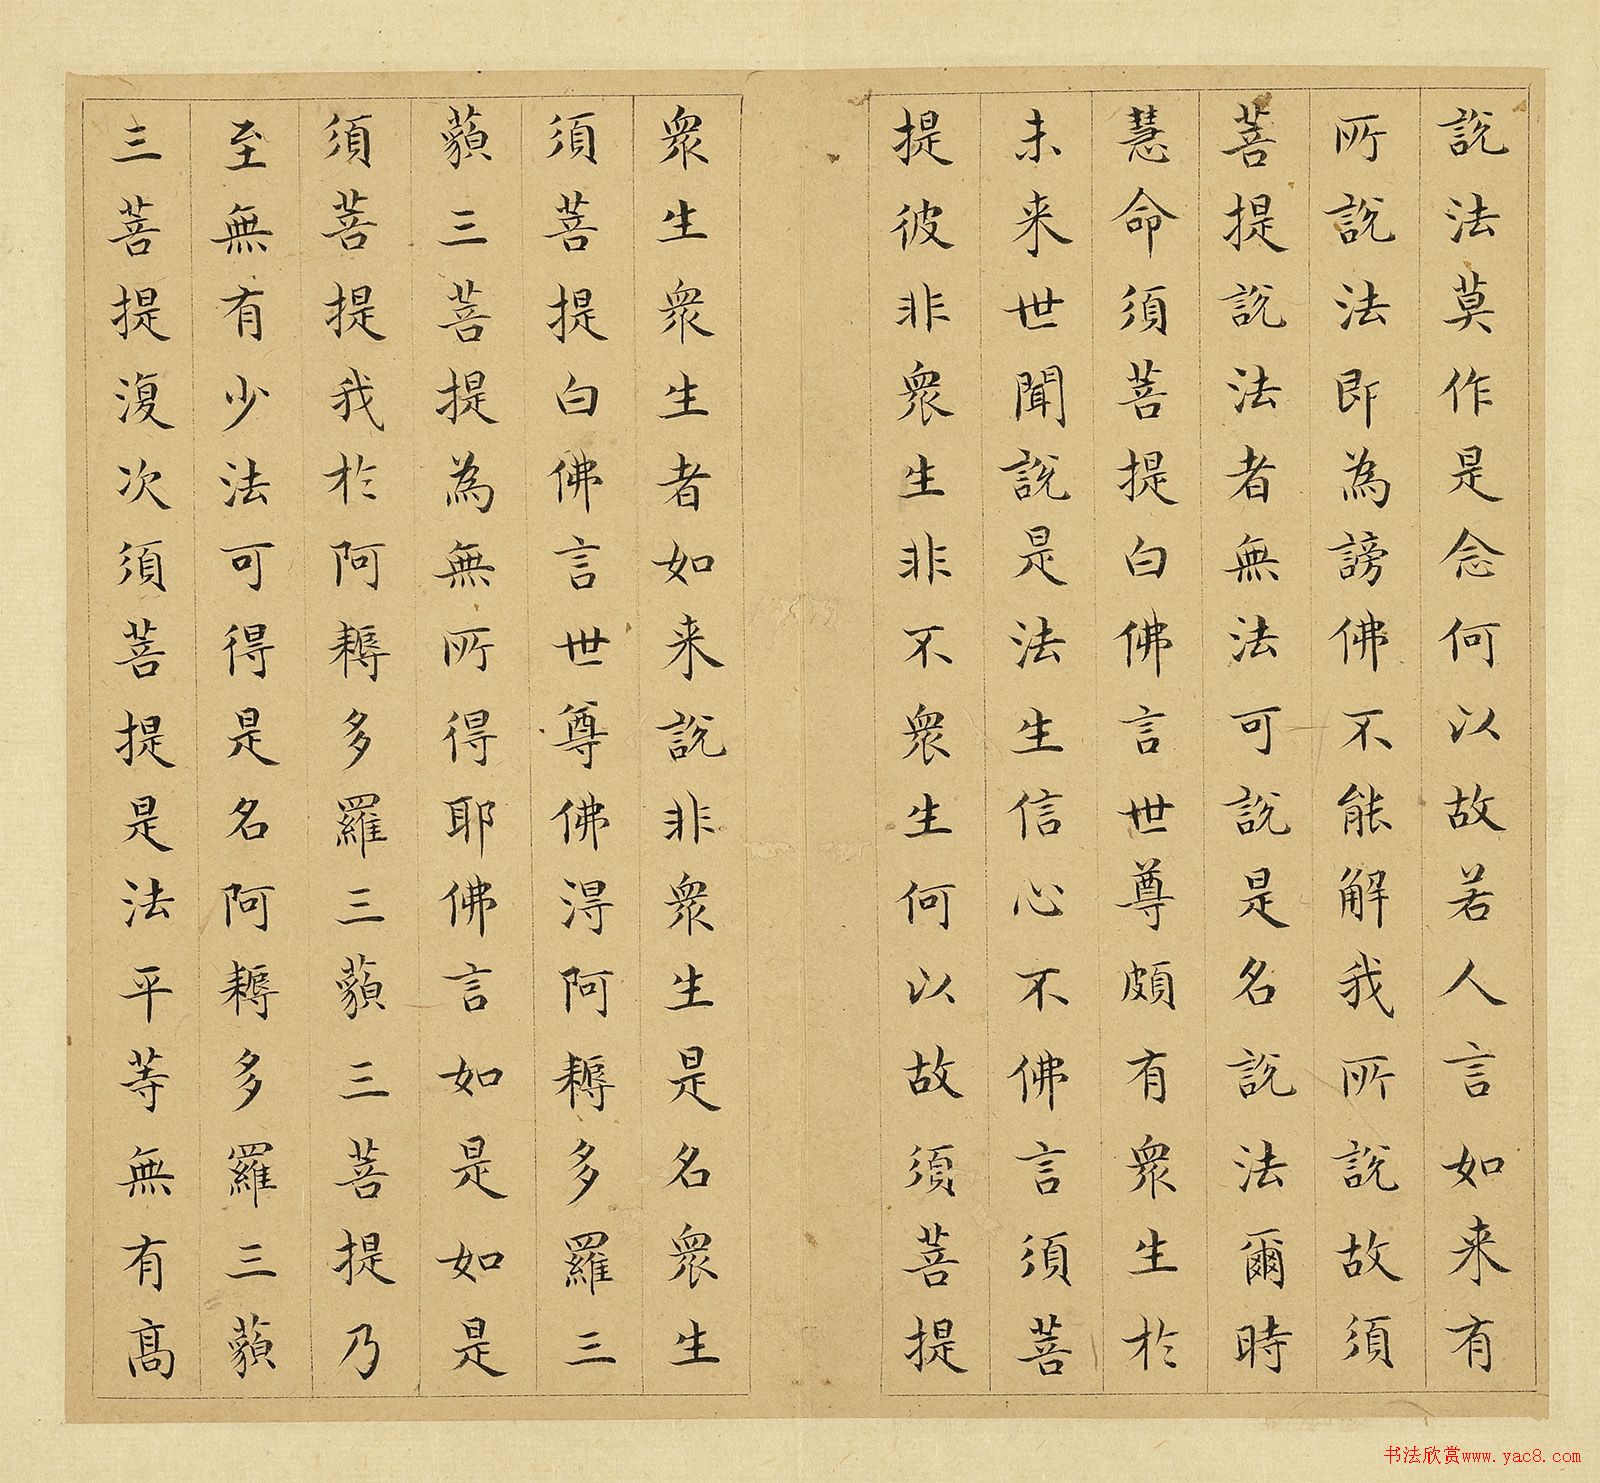 說法莫作是念何以故若人言如来有
所說法即為謗佛不能解我所說故須
菩提說法者無法可說是名說法爾時
慧命須菩提白佛言世尊頗有衆生於
未来世聞說是法生信心不佛言須菩
提彼非衆生非不衆生何以故須菩提
衆生衆生者如来說非衆生是名衆生
須菩提白佛言世尊佛淂阿耨多羅三
藐三菩提為無所得耶佛言如是如是
須菩提我於阿耨多羅三藐三菩提乃
至無有少法可得是名阿耨多羅三藐
三菩提澓次須菩提是法平等無有髙
书法欣赏www.yac8.com